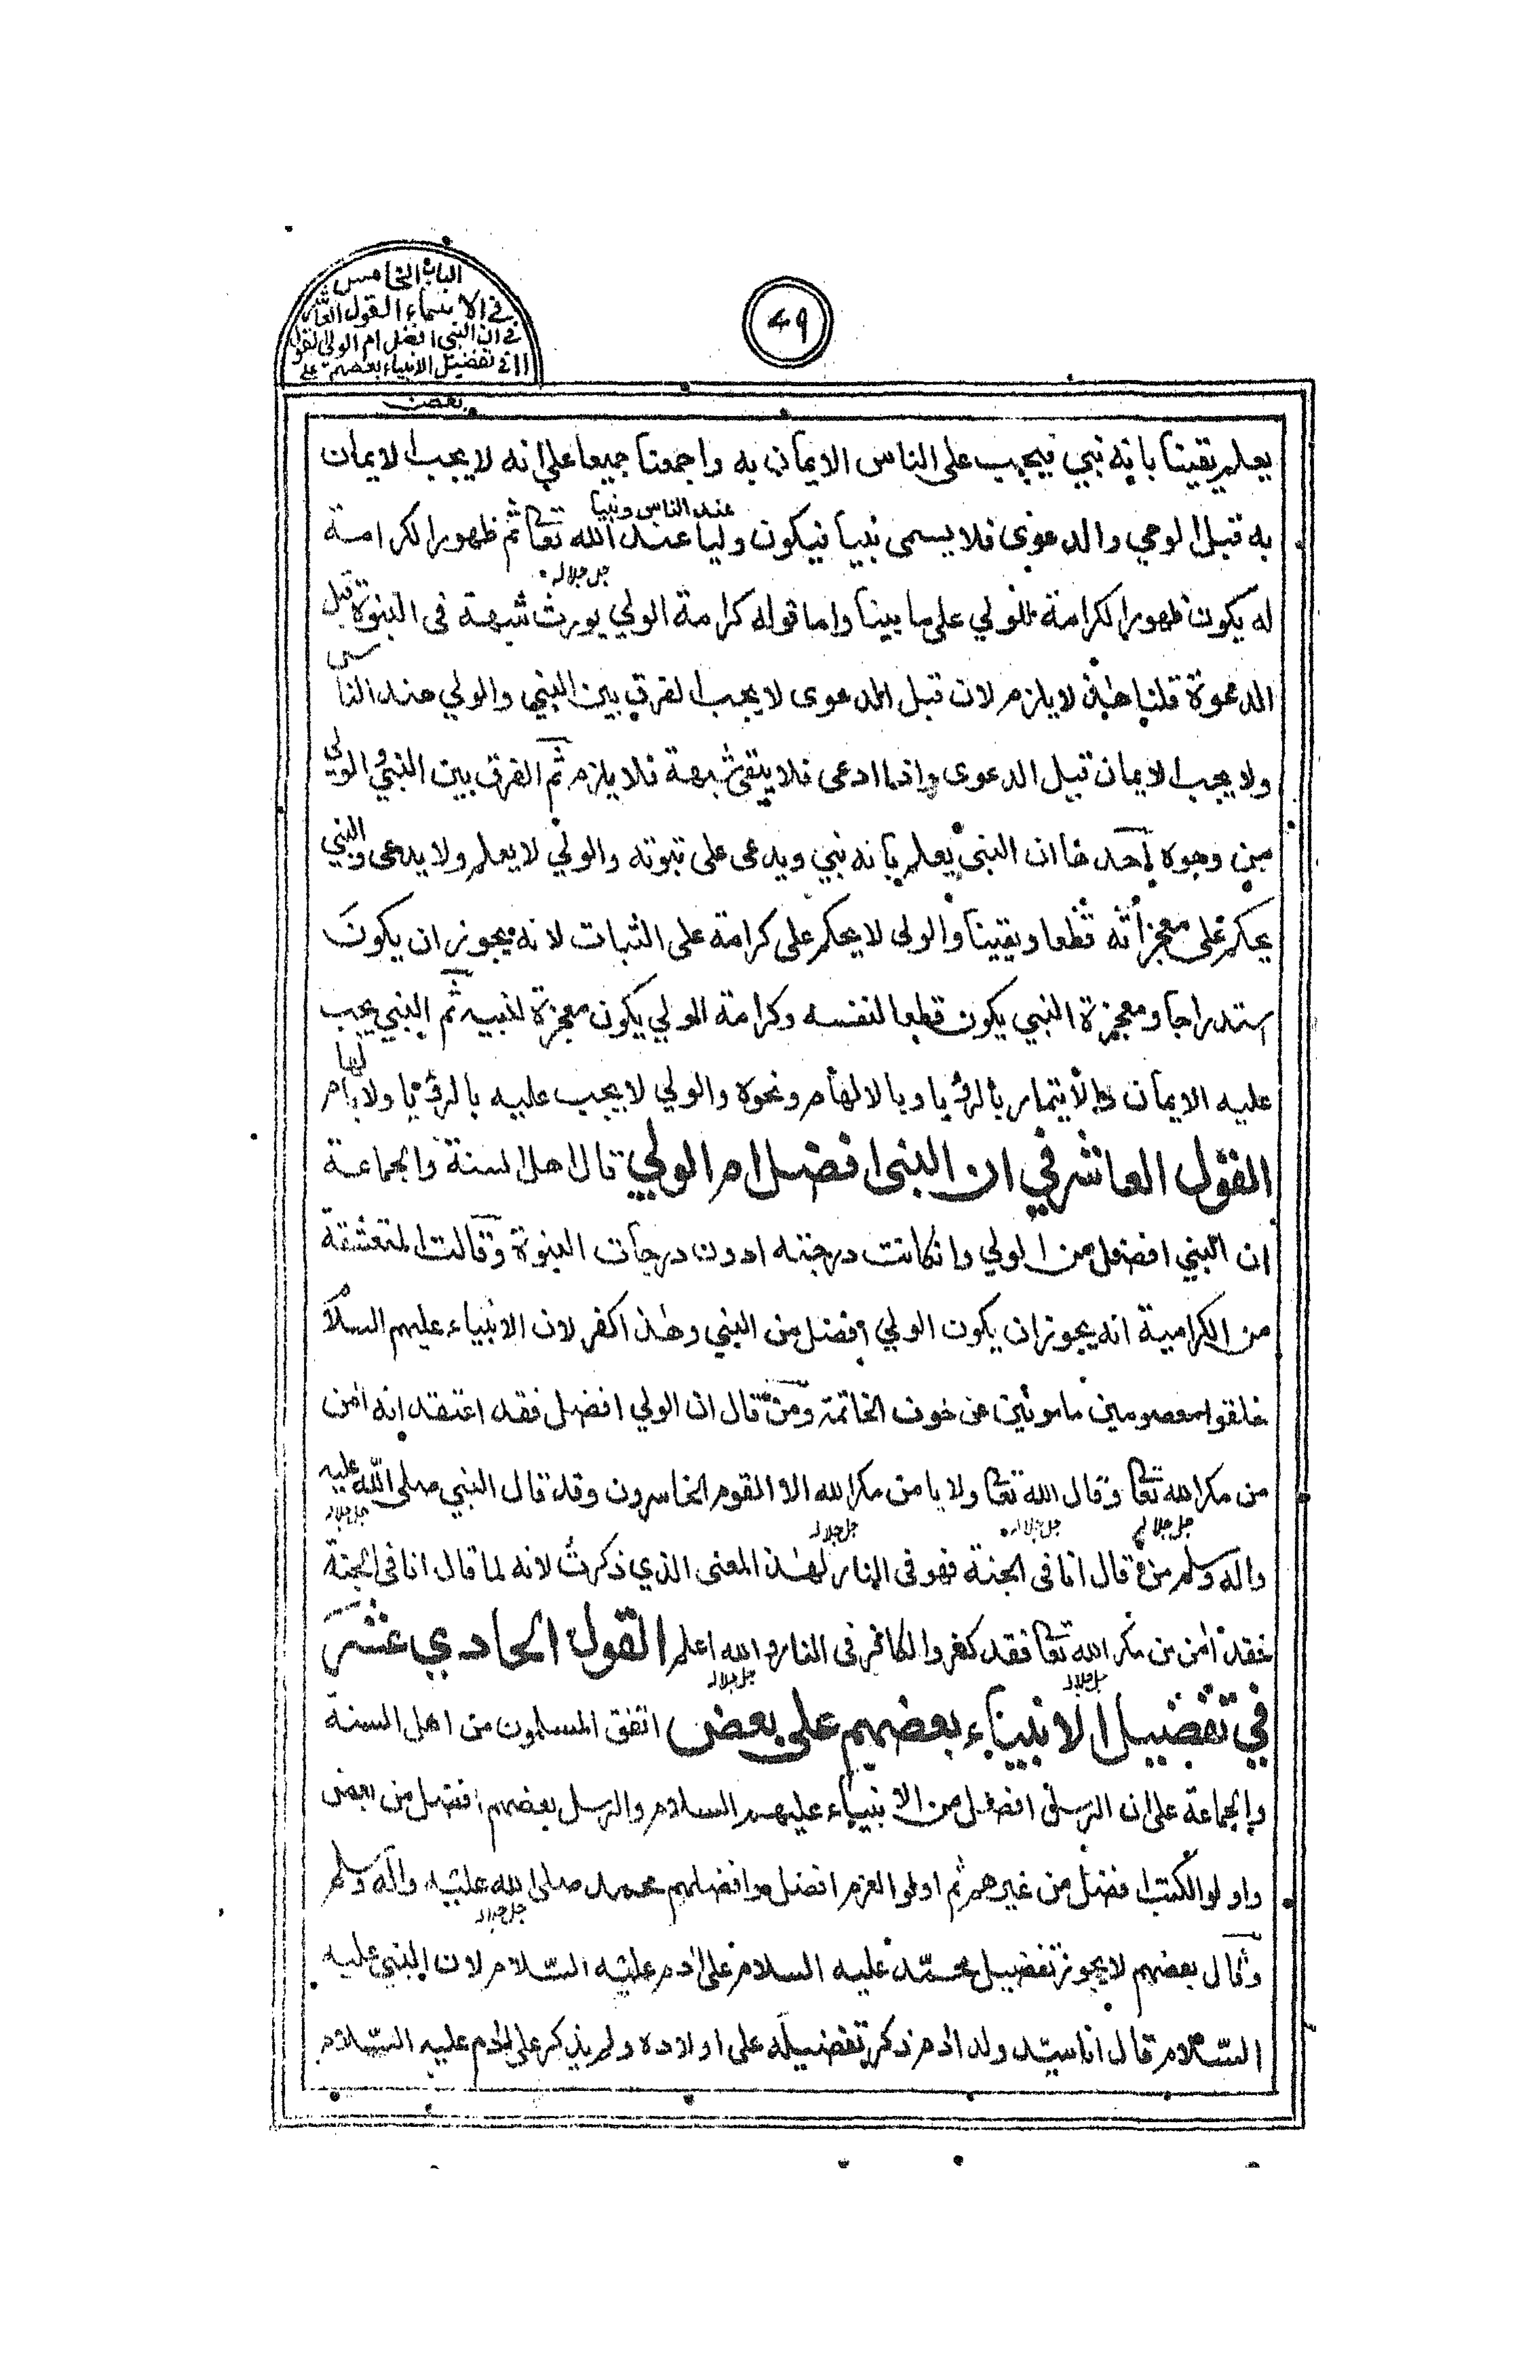 الباب الخامس
في الانبياء القول العاشر
في ان النبي افضل ام الولي القول
١١ في تفضيل الانبياء بعضهم على
بعض
٤٩
يعلم يقينا بانه نبي فيجب على الناس الايمان به واجمعنا جميعا على انه لا يجب الايمان
به قبل الوحي والدعوى فلا يسمى نبيا فيكون وليا عند الله تعا ثم ظهور الكرامة
عند الناس ونبيا
جل جلاله
له يكون ظهور الكرامة للولي على ما بينا واما قوله كرامة الولي يورث شبهة فى النبوة قبل
الدعوة قلنا هذا لا يلزم لان قبل الدعوى لا يجب الفرق بين النبي والولي عند الناس
ولا يجب الايمان قبل الدعوى واذا ادعى فلا يبقى شبهة فلا يلزم ثم الفرق بين النبي والولي
من وجوه احدها ان النبي يعلم بانه نبي ويدعى على نبوته والولي لا يعلم ولا يدعى والنبي
يحكم على معجزاته قطعا ويقينا والولى لا يحكم على كرامة على الثبات لانه يجوز ان يكون
استدراجا ومعجزة النبي يكون قطعا لنفسه وكرامة الولي يكون معجزة لنبيه ثم النبي يجب
عليه الايمان والايتمار بالرؤيا وبالالهام ونحوه والولي لا يجب عليه بالرؤيا ولا بالهام
القول العاشر في ان النبى افضل ام الولي قال اهل السنة والجماعة
ان النبي افضل من الولي وان كانت درجته ادون درجات النبوة وقالت المتقشفة
من الكرامية انه يجوز ان يكون الولي افضل من النبي وهذا كفر لان الانبياء عليهم السلام
خلقوا معصومين مامونين عن خوف الخاتمة ومن قال ان الولي افضل فقد اعتقد انه امن
من مكر الله تعا وقال الله تعا ولا يامن مكر الله الا القوم الخاسرون وقد قال النبي صلى الله عليه
جل جلاله جل جلاله جل جلاله جل جلاله
واله وسلم من قال انا فى الجنة فهو فى النار لهذا المعنى الذي ذكرت لانه لما قال انا فى الجنة
فقد امن من مكر الله تعا فقد كفر والكافر فى النار والله اعلم القول الحادي عشر
جل جلاله جل جلاله
في تفضيل الانبياء بعضهم على بعض اتفق المسلمون من اهل السنة
والجماعة على ان الرسل افضل من الانبياء عليهم السلام والرسل بعضهم افضل من بعض
واولوا الكتب افضل من غيرهم ثم اولوا العزم افضل وافضلهم محمد صلى الله عليه واله وسلم
جل جلاله
وقال بعضهم لا يجوز تفضيل محمد عليه السلام على ادم عليه السلام لان النبي عليه
السلام قال انا سيد ولد ادم ذكر تفضيله على اولاده ولم يذكر على ادم عليه السلام